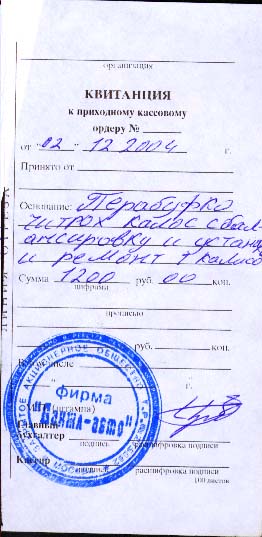 организация
КВИТАНЦИЯ
к приходному кассовому
ордеру №
от "02" 12 2004 г.
Принято от
Основание: Перабуфка
читрох калос с бал-
ансировку и устано
и ремонт 1 калисо
Сумма 1200 руб. 00 коп.
цифрами
прописью
руб. коп.
В том числе
" " г.
М.П. (штампа)
фирма
"Планта-авто"
ЗАКРЫТОЕ АКЦИОНЕРНОЕ ОБЩЕСТВО
Главный
бухгалтер
подпись расшифровка подписи
Кассир
подпись расшифровка подписи
100 листов
ЛИНИЯ ОТРЕЗА